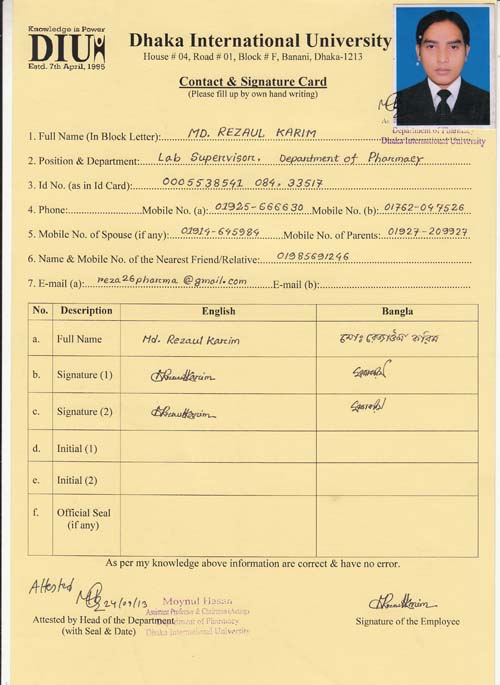 Knowledge is Power
DIU
Estd. 7th April, 1995
Dhaka International University
House # 04, Road # 01, Block # F, Banani, Dhaka-1213
Contact & Signature Card
(Please fill up by own hand writing)
Department of Pharmacy
Dhaka International University
1. Full Name (In Block Letter): MD. REZAUL KARIM
2. Position & Department: Lab Supervisor. Department of Pharmacy
3. Id No. (as in Id Card): 0005538541 084, 33517
4. Phone: Mobile No. (a): 01925-666630 Mobile No. (b): 01762-047526
5. Mobile No. of Spouse (if any): 01914-645984 Mobile No. of Parents: 01927-209927
6. Name & Mobile No. of the Nearest Friend/Relative: 01985691246
7. E-mail (a): reza26pharma@gmail.com E-mail (b):
No. Description English Bangla
a. Full Name Md. Rezaul Karim মোঃ রেজাউল করিম
b. Signature (1)
c. Signature (2)
d. Initial (1)
e. Initial (2)
f. Official Seal
(if any)
As per my knowledge above information are correct & have no error.
Attested 24/09/13
Moynul Hasan
Assistant Professor & Chairman (Acting)
Department of Pharmacy
Dhaka International University
Attested by Head of the Department
(with Seal & Date)
Signature of the Employee